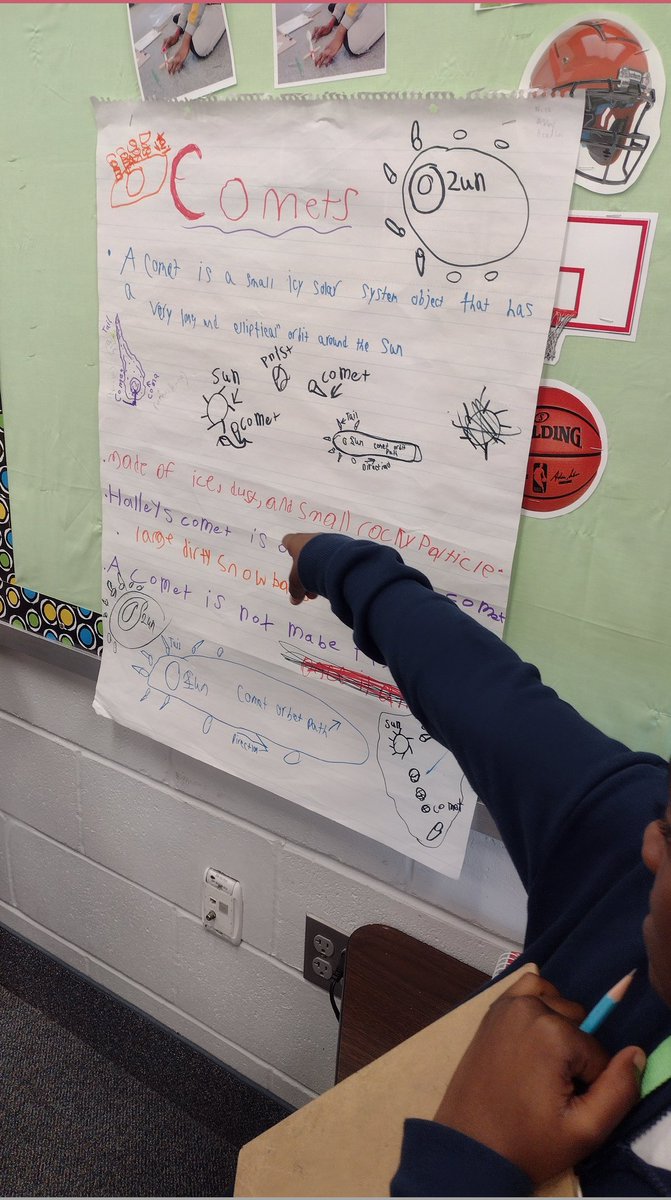 Comets
Sun
• A comet is a small icy solar system object that has
a very long and elliptical orbit around the Sun
Tail
Comet
Coma
Sun
comet
comet
Sun
comet orbit
Path
Direction
• made of ice, dust, and small rocky Particle.
• Halleys comet is
comet
• large dirty snow
• A comet is not made
Sun
Tail
Sun
Comet orbet Path
Direction
Sun
comet
LDING
NBA